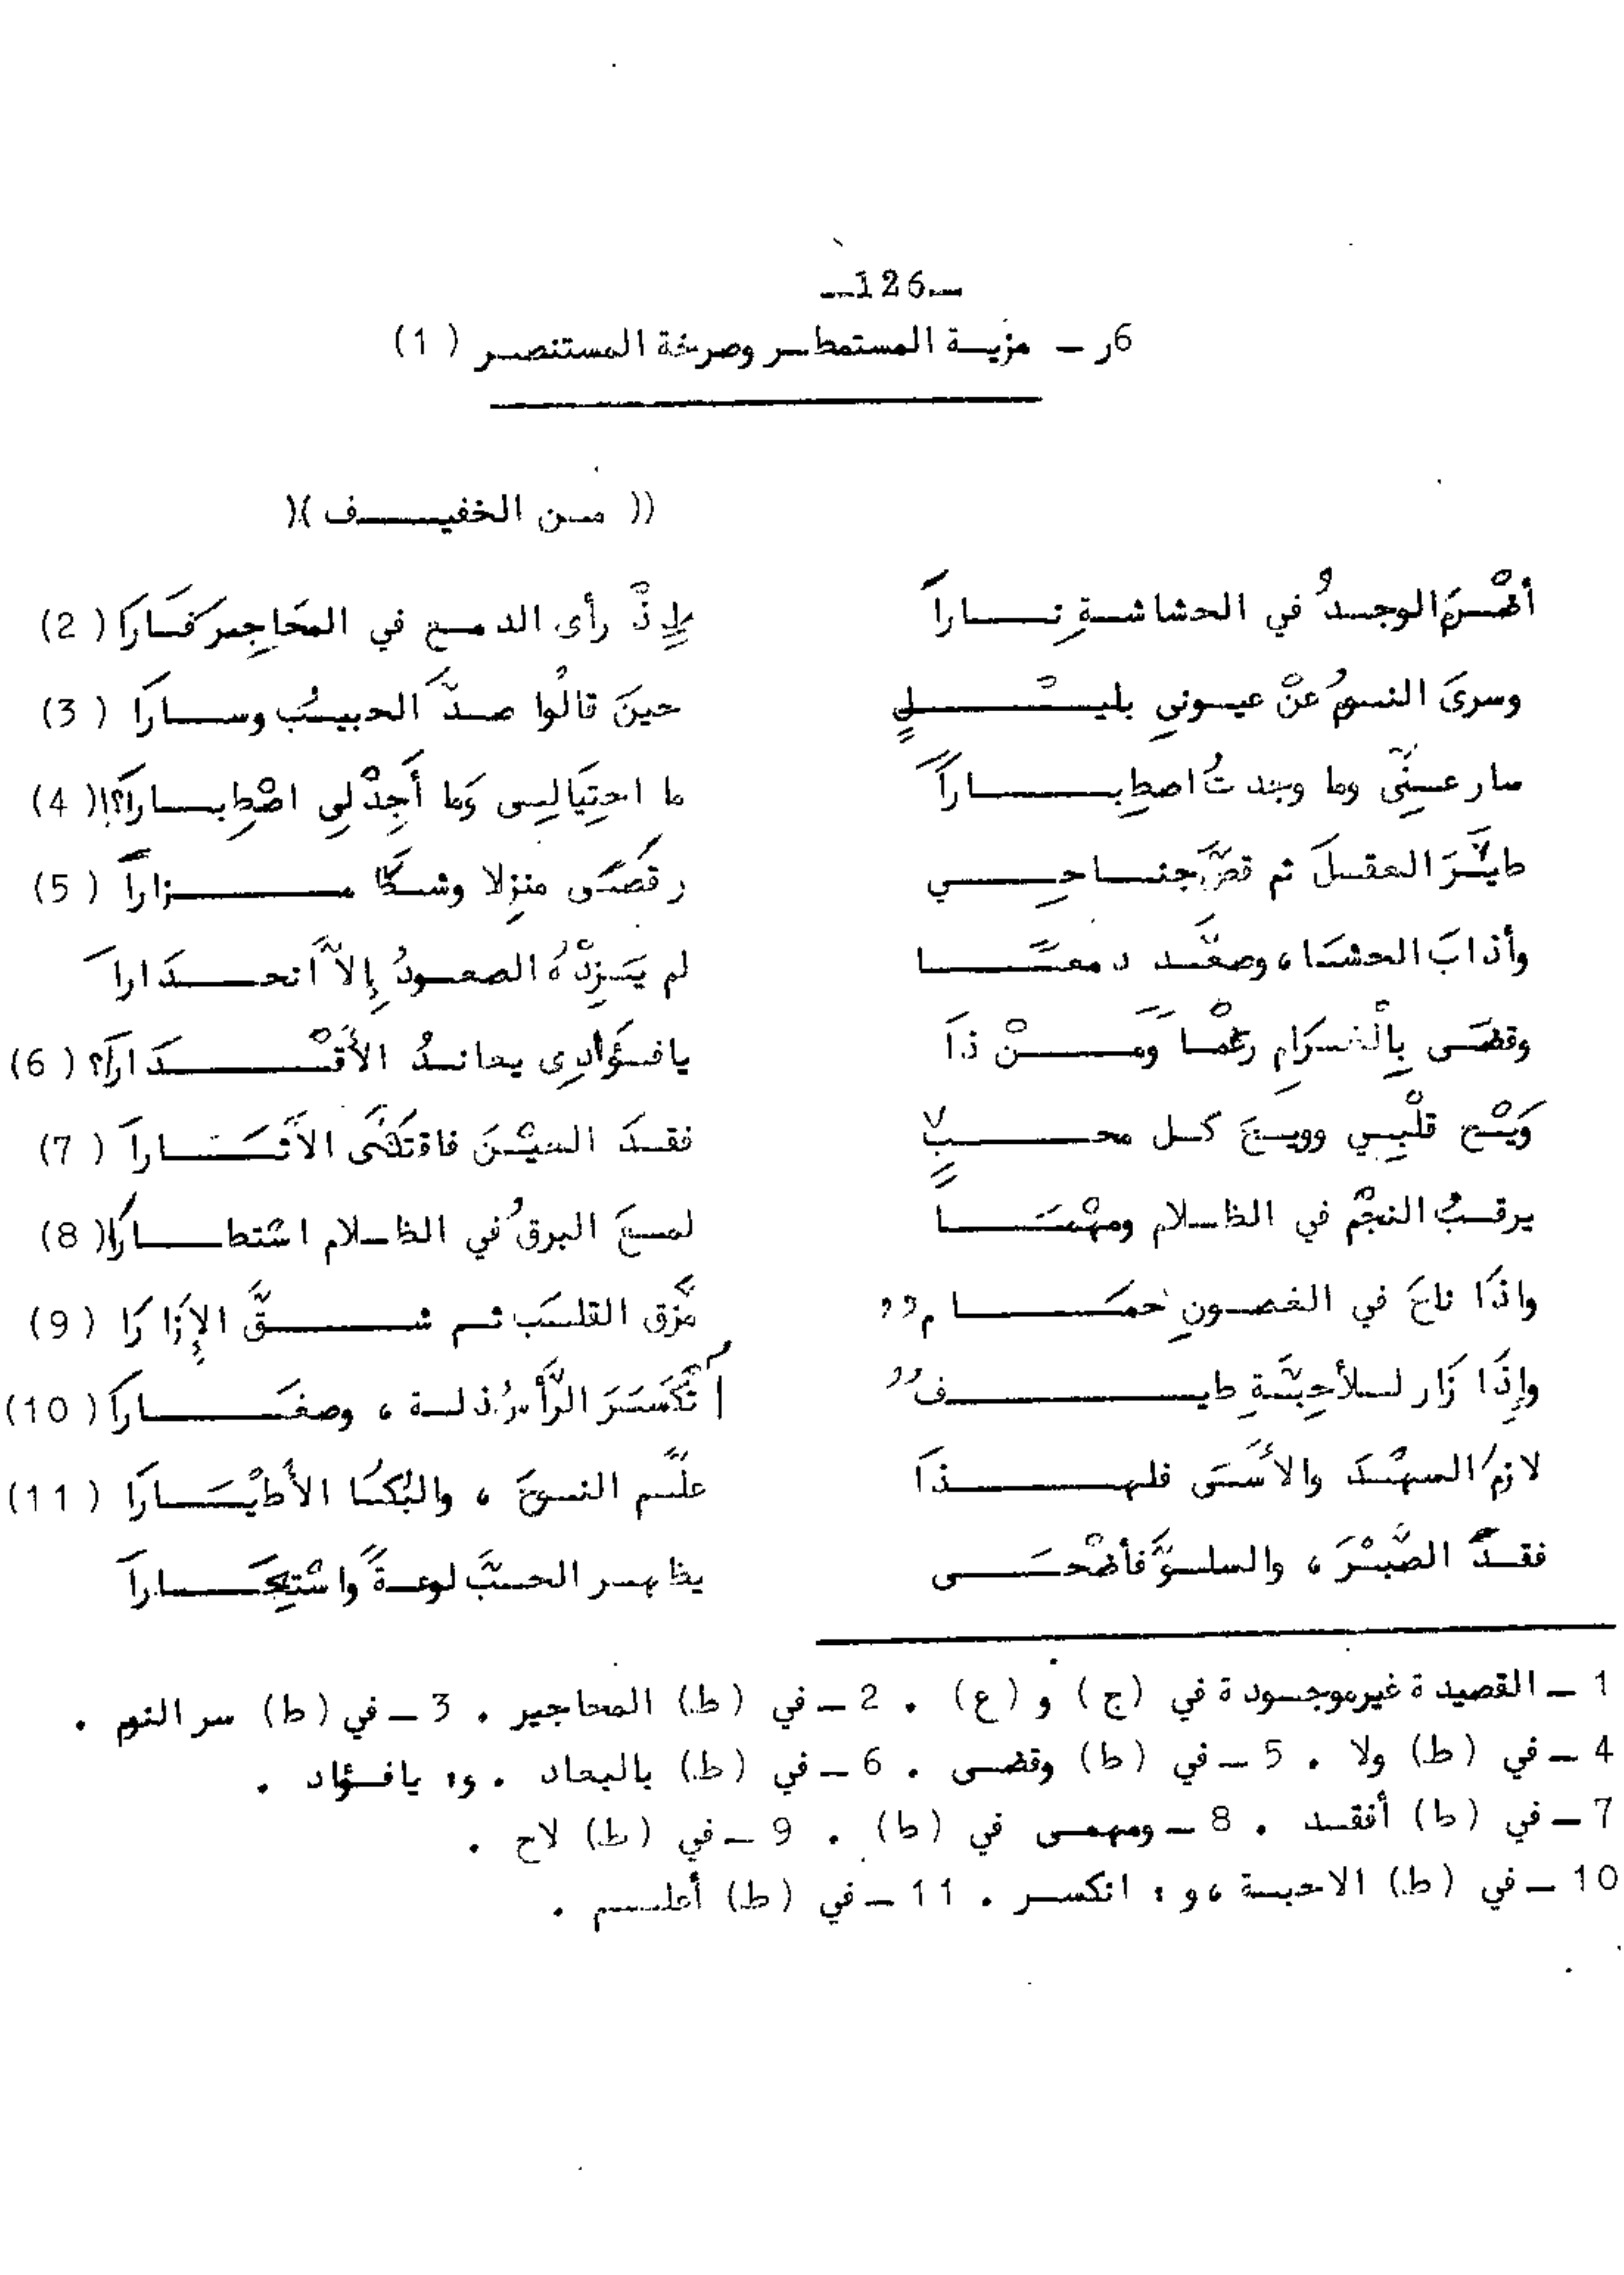 ـ126ـ
6ر ـ مزية المستمطر وصرخة المستنصر (1)
(( من الخفيف ))
أضْرمَ الوجدُ في الحشاشةِ نارا إِذْ رأى الدمع في المحَاجِر فَارَا (2)
وسرىَ النومُ عنْ عيوني بليْلٍ حينَ قالُوا صدَّ الحبيبُ وسارَا (3)
سار عنِّى وما وجدتُ اصطِباراً ما احتِيَالِى وَما أَجِدْ لِى اصْطِبارَا؟! (4)
طيَّرَ العقلَ ثم قصَّ جناحِي رقصَى منزِلا وشكَا مزاراً (5)
وأذابَ الحشَا، وصعَّد دمعًا لم يَزِدْهُ الصعودُ إِلاَّ انحدَارا
وقضَى بِالْغرَامِ رغْماً ومَنْ ذَا يافؤَادِى يعاندُ الأَقْدَارَا؟ (6)
وَيْح قلْبِي وويحَ كل محبٍّ فقدَ العيْنَ فاقتَفَى الأَثَارَا (7)
يرقبُ النجْم في الظلام ومهْمَا لمعَ البرقُ في الظلام اسْتطارَا (8)
واذَا ناحَ في الغصونِ حمَامٌ مَزَّق القلبَ ثم شقَّ الإِزَارَا (9)
وإِذَا زَار للأحِبَّةِ طيفٌ اُنْكَسَرَ الرَّأْسُ ذلة، وصغَارَا (10)
لازمُ السهْدَ والأَسَى فلهذَا علَّم النوحَ، والبُكَا الأَطْيَارَا (11)
فقدَ الصَّبْرَ، والسلوَّ فأضْحَى يظهر الحبَّ لوعةً واسْتِعَارا
1 ـ القصيدة غير موجودة في (ج) و (ع) . 2 ـ في (ط) المحاجير . 3 ـ في (ط) سر النوم .
4 ـ في (ط) ولا . 5 ـ في (ط) وقضى . 6 ـ في (ط) بالبعاد . و: يافؤاد .
7 ـ في (ط) أفقد . 8 ـ ومهمى في (ط) . 9 ـ في (ط) لاح .
10 ـ في (ط) الاحبة، و: انكسر . 11 ـ في (ط) أعلم .